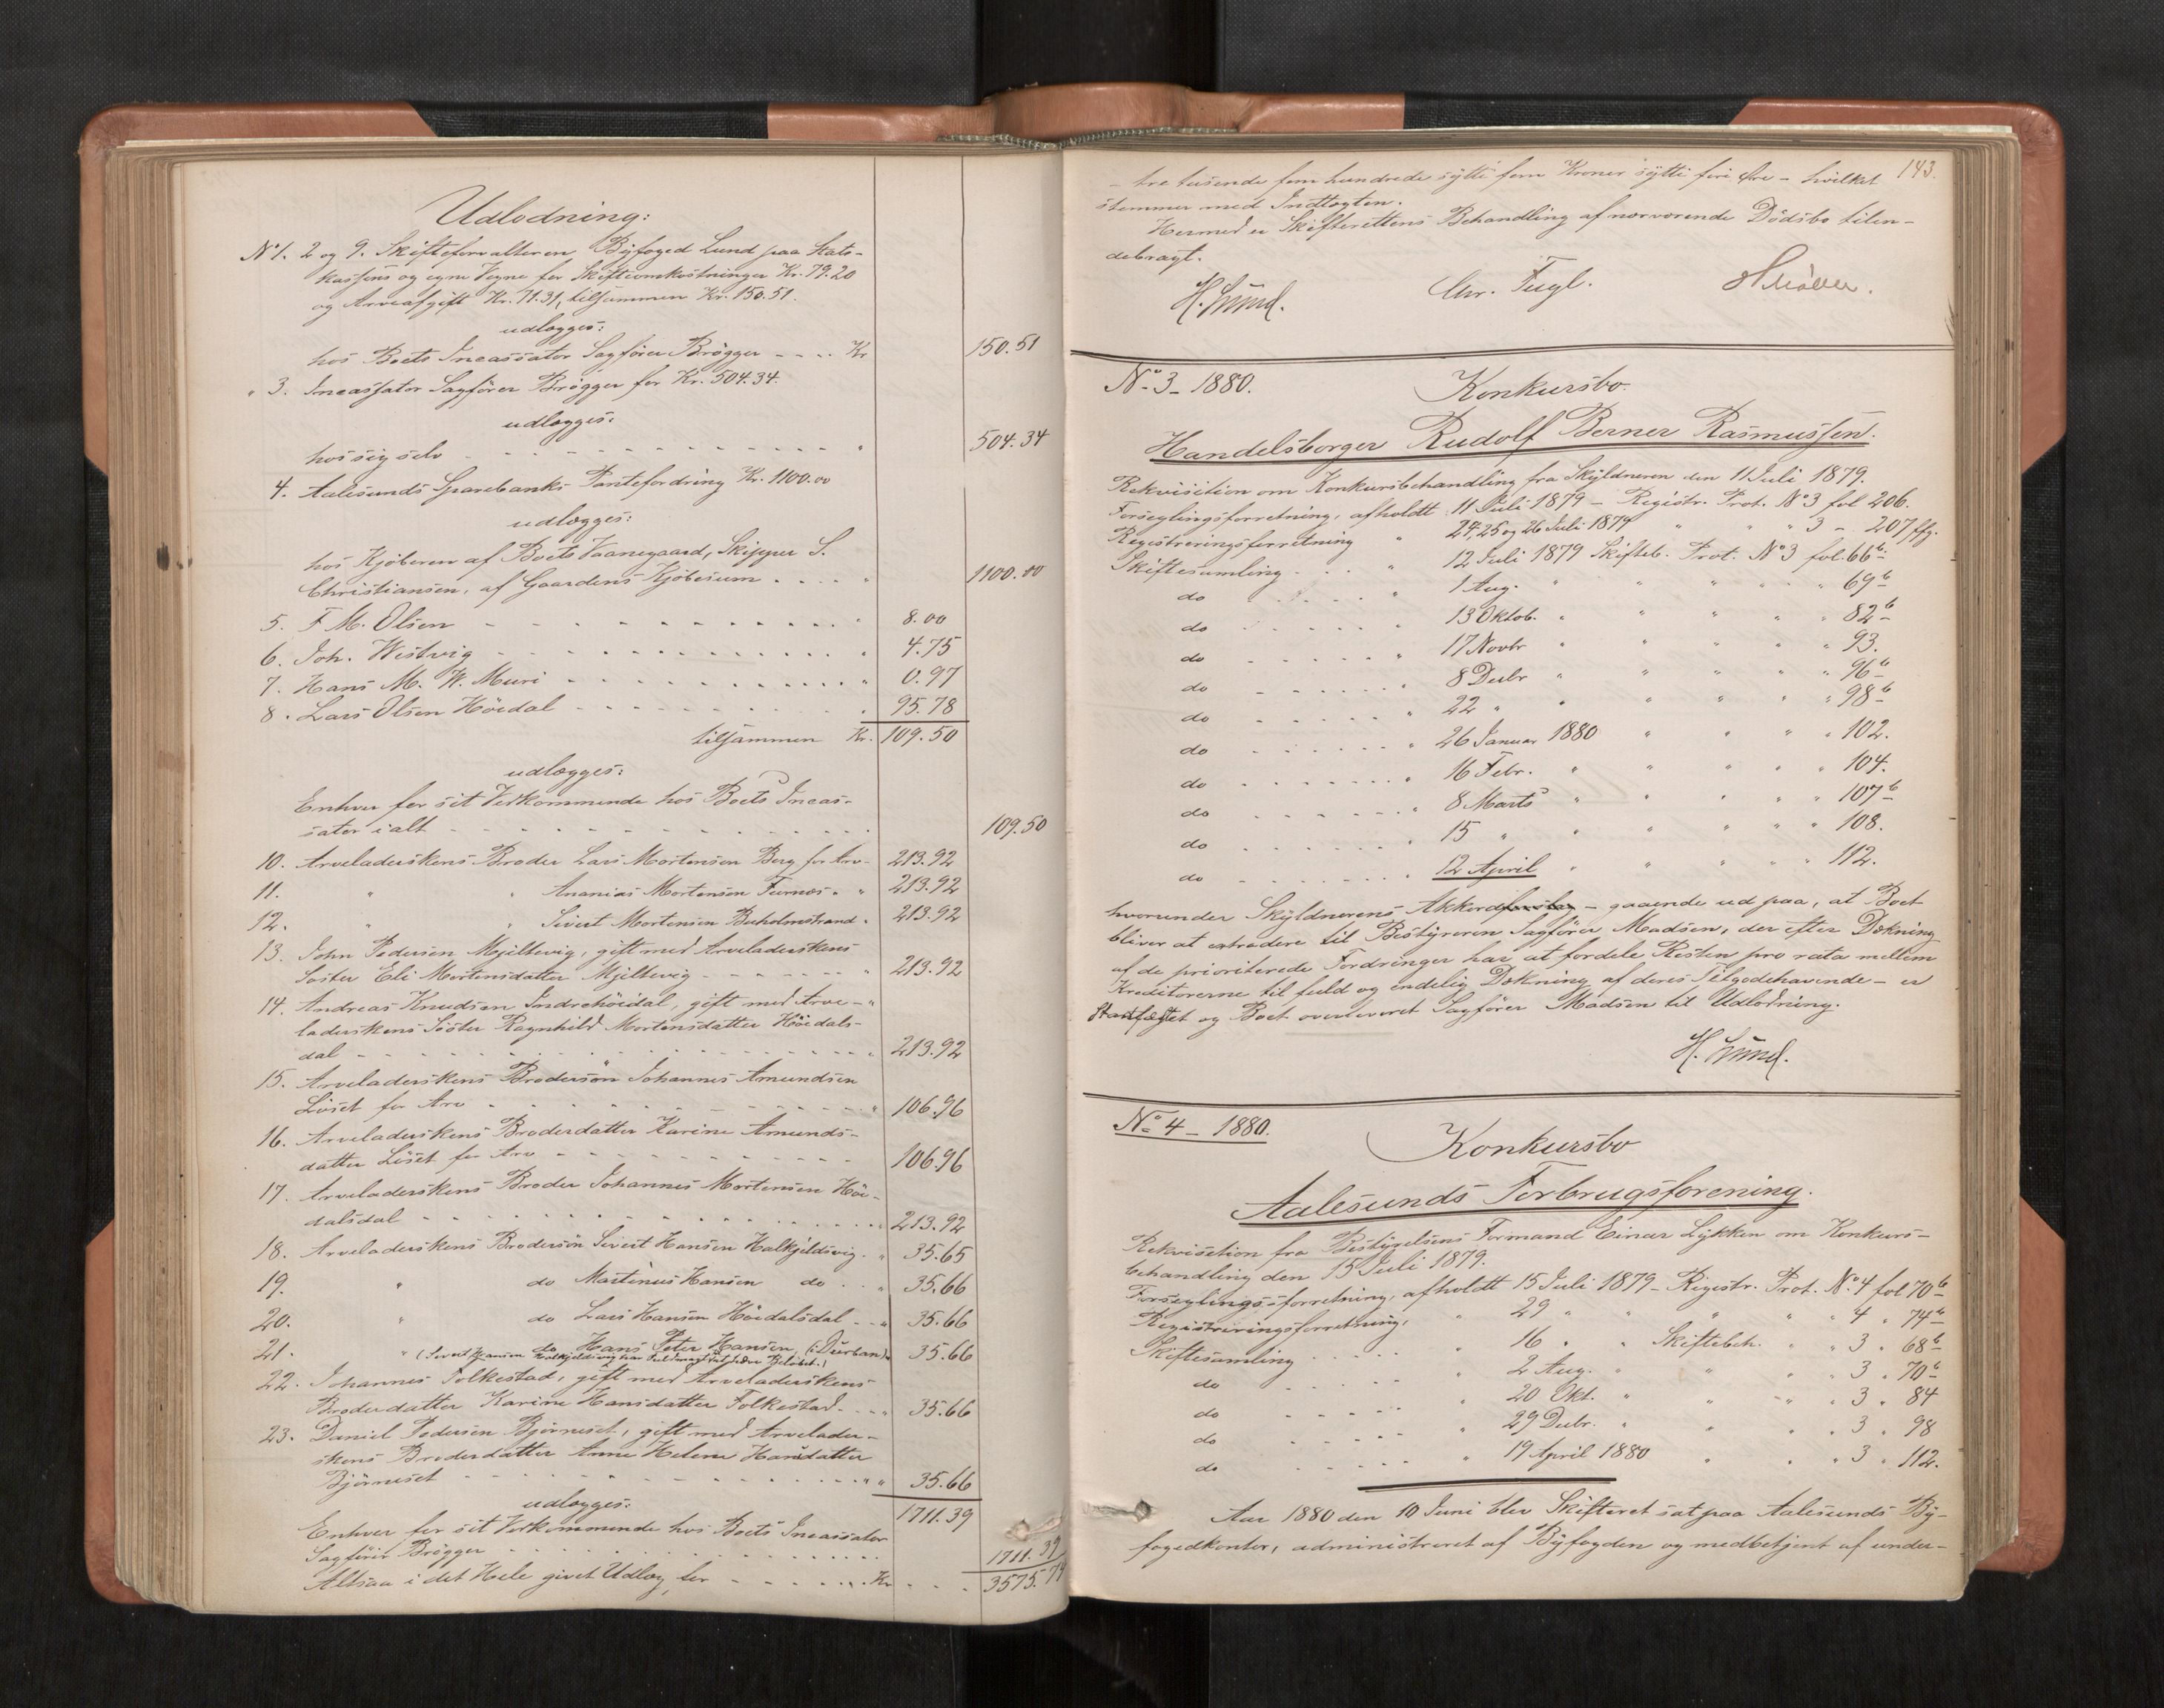 Udlodning:
No 1. 2 og 9. Skifteforvalteren Byfoged Lund paa Stats-
kassens og egne Vegne for Skifteomkostninger Kr. 79.20
og Arveafgift Kr. 71.31, tilsammen Kr. 150.51.
udlægges:
hos Boets Incassator Sagfører Brøgger - - - - Kr 150.51
" 3. Incassator Sagfører Brøgger for Kr. 504.34.
udlægges:
hos sig selv - - - - - " 504.34
4. Aalesunds Sparebanks Pantefordring Kr. 1100.00
udlægges:
hos Kjøberen af Boets Vaanegaard, Skipper S.
Christiansen, af Gaardens Kjøbesum . . . . " 1100.00
5. F M. Olsen - - - - - " 8.00
6. Joh. Westvig - - - - - " 4.75
7. Hans M. W. Muri - - - - - " 0.97
8. Lars Olsen Höidal - - - - - " 95.78
tilsammen Kr. 109.50
udlægges:
Enhver for sit Vedkommende hos Boets Incas-
sator ialt - - - - - 109.50
10. Arveladerskens Broder Lars Mortensen Berg for Arv - 213.92
11. " " Ananias Mortensen Furnes - " 213.92
12. " " Sivert Mortensen Buholmstrand " 213.92
13. John Pedersen Mjeltevig, gift med Arveladerskens
Søster Eli Mortensdatter Mjeltevig - - - - " 213.92
14. Andreas Knudsen Indrehöidal, gift med Arve-
laderskens Søster Ragnhild Mortensdatter Höidals-
dal - - - - - " 213.92
15. Arveladerskens Brodersön Johannes Amundsen
Löset for Arv - - - - - " 106.96
16. Arveladerskens Broderdatter Karine Amunds-
datter Löset for Arv - - - - - 106.96
17. Arveladerskens Broder Johannes Mortensen Höi-
dalsdal - - - - - " 213.92
18. Arveladerskens Brodersön Sivert Hansen Halkjeldsvig - " 35.65
19. " do Martinus Hansen do . . " 35.66
20. " do Lars Hansen Höidalsdal - - " 35.66
21. " do Hans Peter Hansen (i Durban) " 35.66
(Sivert Hansen Halkjeldsvig har Fuldmagt
22. Johannes Folkestad, gift med Arveladerskens
Broderdatter Karine Hansdatter Folkestad - - - " 35.66
23. Daniel Pedersen Bjørneset, gift med Arvelader-
skens Broderdatter Anne Helene Hansdatter
Bjørneset - - - - - " 35.66
udlægges: 1711.39
Enhver for sit Vedkommende hos Boets Incassator
Sagfører Brøgger . . . . . 1711.39
Altsaa i det Hele givet Udlæg for - - - - - Kr - - - 3575.74
143.
- tre tusende fem hundrede sytti fem Kroner sytti fire Øre - hvilket
stemmer med Indtægten.
Hermed er Skifterettens Behandling af nærværende Dödsbo tilen-
debragt.
H. Lund. Chr. Fugl.
No 3 - 1880. Konkursbo.
Handelsborger Rudolf Berner Rasmussen.
Rekvisition om Konkursbehandling fra Skyldneren den 11 Juli 1879.
Forseglingsforretning, afholdt 11 Juli 1879 - Registr. Prot. No 3 fol 206.
Registreringsforretning " 24, 25 og 26 Juli 1879 " " " 3 - 207 ffg.
Skiftesamling . . . " 12 Juli 1879 Skifteb. Prot. No 3 fol. 66b
do - - - - " 1 Aug. " " " " " 69b
do - - - - " 13 Oktob. " " " " " 82b
do - - - - " 17 Novbr " " " " " 93.
do - - - - " 8 Decbr " " " " " 96b
do - - - - " 22 " " " " " " 98b
do - - - - " 26 Januar 1880 " " " " 102.
do - - - - " 16 Febr. " " " " " 104.
do - - - - " 8 Marts " " " " " 107b
do - - - - " 15 " " " " " " 108.
do - - - - " 12 April " " " " " 112.
hvorunder Skyldnerens Akkordforslag - gaaende ud paa, at Boet
bliver at extradere til Bestyreren Sagfører Madsen, der efter Dækning
af de prioriterede Fordringer har at fordele Resten pro rata mellem
Kreditorerne til fuld og endelig Dækning af deres Tilgodehavende - er
Stadfæstet og Boet overleveret Sagfører Madsen til Udlodning.
H. Lund.
No 4 - 1880.
Konkursbo
Aalesunds Forbrugsforening.
Rekvisition fra Bestyrelsens Formand Einar Lykken om Konkurs-
behandling den 15 Juli 1879.
Forseglingsforretning, afholdt 15 Juli 1879 - Registr. Prot. No 4 fol 70b
Registreringsforretning, " 29 " " " " " 4 " 74b
Skiftesamling . . . . . " 16 " " Skiftebeh. " " 3 " 68b
do - - - - " 2 Aug. " " " " 3 " 70b
do - - - - " 20 Okt. " " " " 3 " 84
do - - - - " 29 Decbr. " " " " 3 " 98
do - - - - " 19 April 1880 " " " 3 " 112.
Aar 1880 den 10 Juni blev Skifteret sat paa Aalesunds By-
fogedkontor, administreret af Byfogden og medbetjent af under-